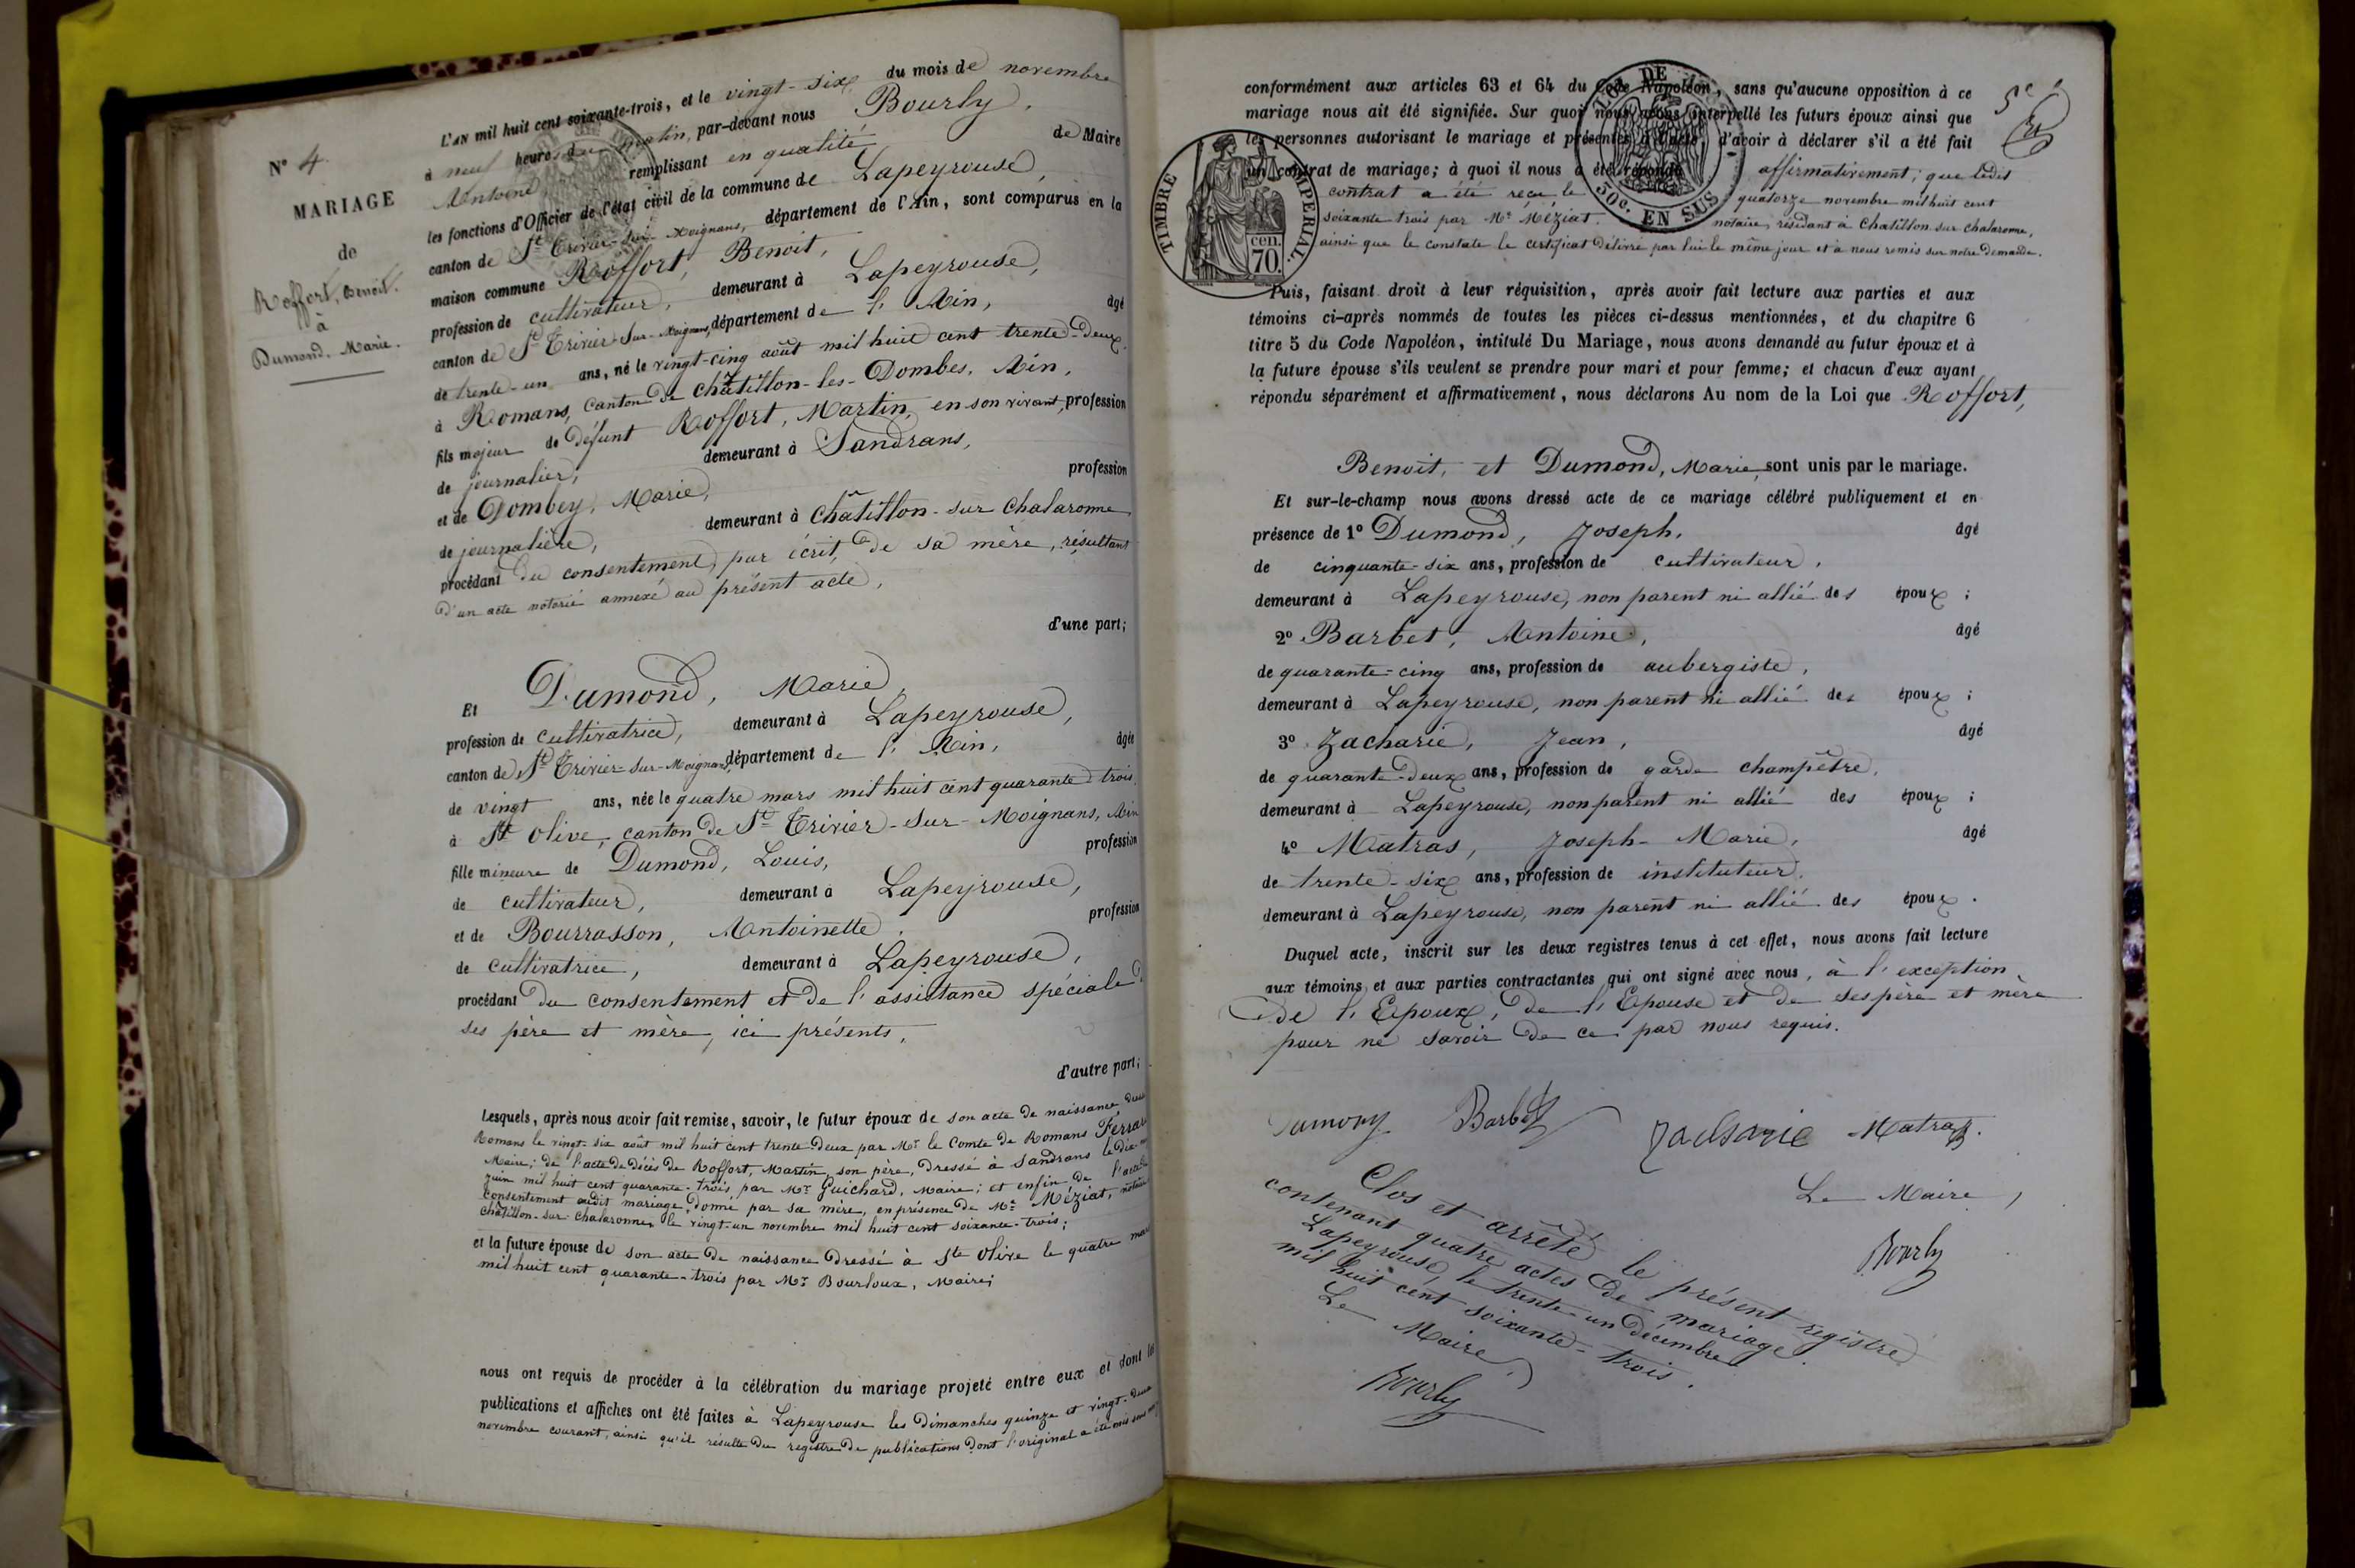 N° 4
MARIAGE
de
Roffort, Benoit.
à
Dumond. Marie.
L'AN mil huit cent soixante-trois, et le vingt-six du mois de novembre
à neuf heures du matin, par-devant nous Bourly,
Antoine remplissant en qualité de Maire
les fonctions d'Officier de l'état civil de la commune de Lapeyrouse,
canton de St Trivier-sur-Moignans, département de l'Ain, sont comparus en la
maison commune Roffort, Benoit,
profession de cultivateur, demeurant à Lapeyrouse,
canton de St Trivier-Sur-Moignans, département de l'Ain, âgé
de trente-un ans, né le vingt-cinq août mil huit cent trente-deux
à Romans, canton de châtillon-les-Dombes, Ain,
fils majeur de défunt Roffort, Martin, en son vivant, profession
de journalier, demeurant à Sandrans,
et de Dombey, Marie, profession
de journalière, demeurant à Châtillon-sur Chalaronne
procédant du consentement, par écrit, de sa mère, résultant
d'un acte notarié annexé au présent acte,
d'une part;
Et Dumond, Marie,
profession de cultivatrice, demeurant à Lapeyrouse,
canton de St Trivier-Sur-Moignans, département de l'Ain, âgée
de vingt ans, née le quatre mars mil huit cent quarante trois
à Ste Olive, canton de St Trivier-Sur-Moignans, Ain
fille mineure de Dumond, Louis, profession
de cultivateur, demeurant à Lapeyrouse,
et de Bourrasson, Antoinette, profession
de cultivatrice, demeurant à Lapeyrouse,
procédant du consentement et de l'assistance spéciale de
ses père et mère, ici présents,
d'autre part;
Lesquels, après nous avoir fait remise, savoir, le futur époux de son acte de naissance
Romans le vingt-six août mil huit cent trente-deux par Mr le Comte de Romans Ferrari
Maire; de l'acte de décès de Roffort, Martin, son père, dressé à Sandrans le
juin mil huit cent quarante-trois, par Mr Guichard, Maire; et enfin de l'acte
consentement audit mariage, donné par sa mère, en présence de Me Méziat, notaire
Châtillon-sur-Chalaronne, le vingt-un novembre mil huit cent soixante-trois;
et la future épouse de son acte de naissance dressé à Ste Olive le quatre mars
mil huit cent quarante-trois par Mr Bourloux, Maire;
nous ont requis de procéder à la célébration du mariage projeté entre eux et dont les
publications et affiches ont été faites à Lapeyrouse les dimanches quinze et vingt-deux
novembre courant, ainsi qu'il résulte du registre de publications dont l'original a été mis sous nos
conformément aux articles 63 et 64 du Code Napoléon, sans qu'aucune opposition à ce
mariage nous ait été signifiée. Sur quoi nous avons interpellé les futurs époux ainsi que
les personnes autorisant le mariage et présentes à l'acte, d'avoir à déclarer s'il a été fait
un contrat de mariage; à quoi il nous a été répondu affirmativement; que ledit
contrat a été reçu le quatorze novembre mil huit cent
soixante trois par Me Méziat, notaire, résidant à Chatillon sur chalaronne,
ainsi que le constate le certificat délivré par lui le même jour et à nous remis sur notre demande.
TIMBRE IMPERIAL
cen.
70.
50c. EN SUS
Puis, faisant droit à leur réquisition, après avoir fait lecture aux parties et aux
témoins ci-après nommés de toutes les pièces ci-dessus mentionnées, et du chapitre 6
titre 5 du Code Napoléon, intitulé Du Mariage, nous avons demandé au futur époux et à
la future épouse s'ils veulent se prendre pour mari et pour femme; et chacun d'eux ayant
répondu séparément et affirmativement, nous déclarons Au nom de la Loi que Roffort,
Benoit, et Dumond, Marie, sont unis par le mariage.
Et sur-le-champ nous avons dressé acte de ce mariage célébré publiquement et en
présence de 1° Dumond, Joseph, âgé
de cinquante-six ans, profession de cultivateur,
demeurant à Lapeyrouse, non parent ni allié des époux;
2° Barbet, Antoine, âgé
de quarante-cinq ans, profession de aubergiste,
demeurant à Lapeyrouse, non parent ni allié des époux;
3° Zacharie, Jean, âgé
de quarante-deux ans, profession de garde champêtre,
demeurant à Lapeyrouse, non parent ni allié des époux;
4° Matras, Joseph-Marie, âgé
de trente-six ans, profession de instituteur,
demeurant à Lapeyrouse, non parent ni allié des époux.
Duquel acte, inscrit sur les deux registres tenus à cet effet, nous avons fait lecture
aux témoins et aux parties contractantes qui ont signé avec nous, à l'exception
de l'Epoux, de l'Epouse et de ses père et mère
pour ne savoir de ce par nous requis.
Barbet Zacharie Matras.
Le Maire,
Bourly
Clos et arrêté le présent registre
contenant quatre actes de mariage.
Lapeyrouse, le trente-un décembre
mil huit cent soixante-trois.
Le Maire
Bourly